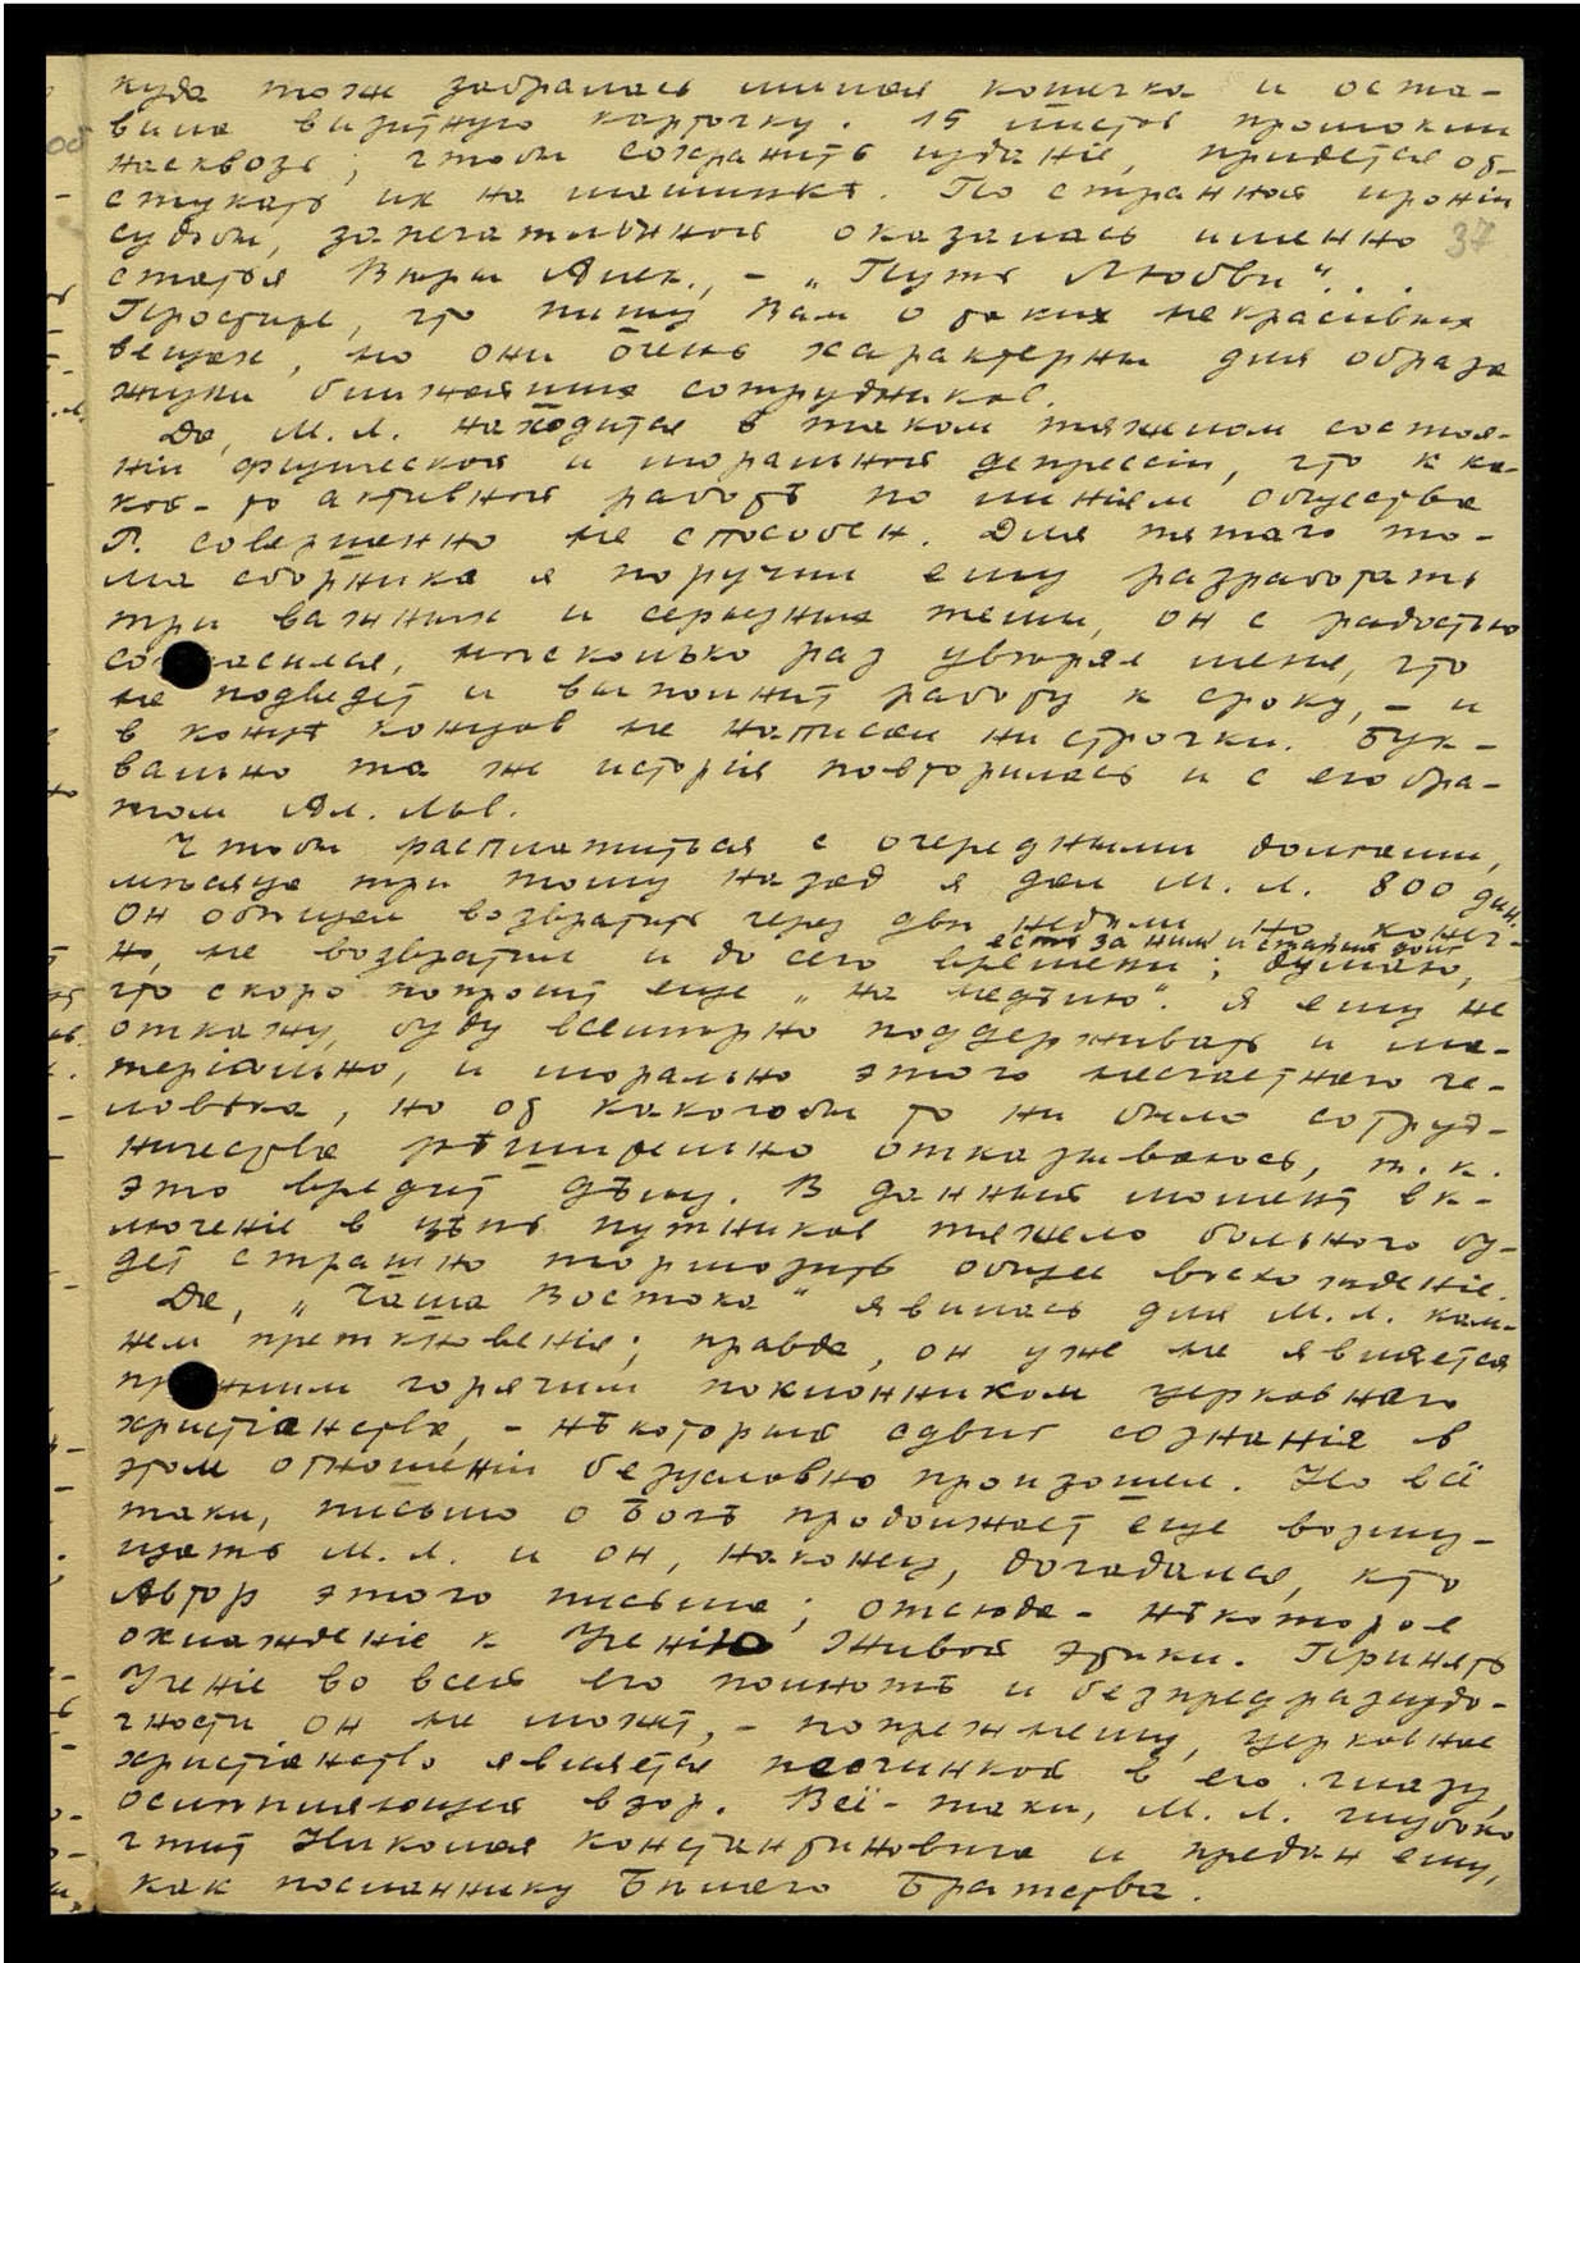 куда тоже забралась милая кошечка и оста-
вила визитную карточку. 15 листов промокли
насквозь; чтобы сохранить изданіе, придется об-
стукать их на машинкѣ. По странной ироніи
судьбы, запечатлѣнной оказалась именно
37
статья Вѣры Алек., – „Путь Любви“...
Простите, что пишу Вам о таких некрасивых
вещах, но они очень характерны для образа
жизни ближайших сотрудников.
Да, М. Л. находится в таком тяжелом состоя-
ніи физической и моральной депрессіи, что к ка-
кой-то активной работѣ по линіям общества
Р. совершенно не способен. Для пятаго то-
ма сборника я поручил ему разработать
три важных и серьезных темы, он с радостью
со асился, нѣсколько раз увѣрял меня, что
не подведет и выполнит работу к сроку, – и
в концѣ концов не написал ни строчки. Бук-
вально та же исторія повторилась и с его бра-
том Ал. Льв.
Чтобы расплатиться с очередными долгами,
мѣсяца три тому назад я дал М. Л. 800 дин.
Он обѣщал возвратить через двѣ недѣли, но, конеч-
есть за ним и старый долг
но, не возвратил и до сего времени; думаю,
что скоро попросит еще „на недѣлю“. Я ему не
откажу, буду всемѣрно поддерживать и ма-
теріально, и морально этого несчастнаго че-
ловѣка, но от какого бы то ни было сотруд-
ничества рѣшительно отказываюсь, т. к.
это вредит дѣлу. В данный момент вк-
люченіе в цѣпь путников тяжело больного бу-
дет страшно тормозить общее восхожденіе.
Да, „Чаша Востока“ явилась для М. Л. кам-
нем преткновенія; правда, он уже не является
пр жним горячим поклонником церковнаго
христіанства, – нѣкоторый сдвиг сознанія в
этом отношеніи безусловно произошел. Но всё
таки, письмо о Богѣ продолжает еще возму-
щать М. Л. и он, наконец, догадался, кто
Автор этого письма; отсюда – нѣкоторое
охлажденіе к Ученію Живой Этики. Принять
Ученіе во всей его полнотѣ и безпредразсудо-
чности он не может, – попрежнему, церковное
христіанство является песчинкой в его глазу,
ослѣпляющей взор. Всё-таки, М. Л. глубоко
чтит Николая Константиновича и предан ему,
как посланнику Бѣлаго Братства.